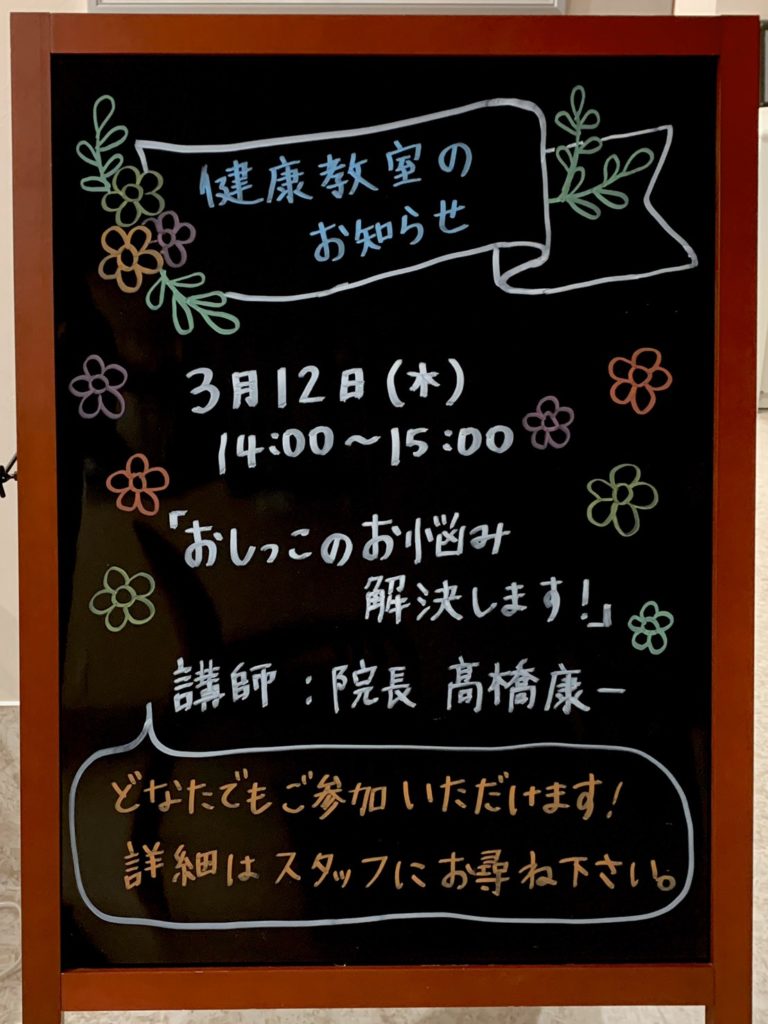 健康教室の
お知らせ
3月12日(水)
14:00～15:00
「おしっこのお悩み
解決します!」
講師:院長 髙橋康一
どなたでもご参加いただけます!
詳細はスタッフにお尋ね下さい。